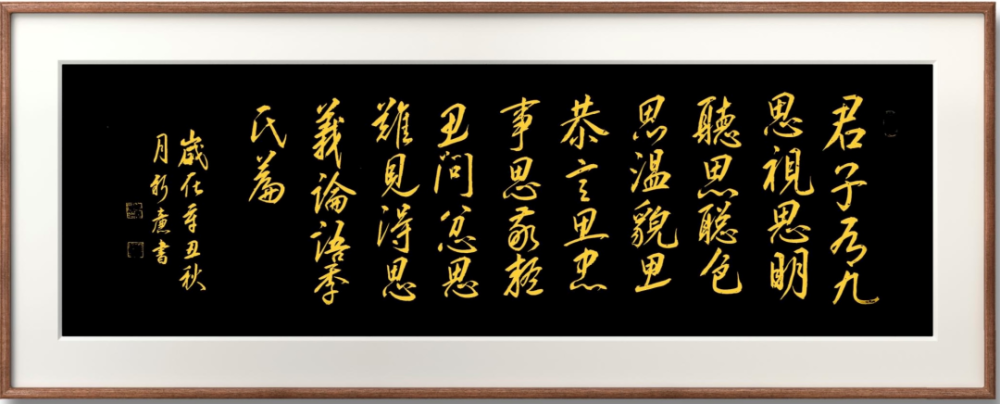 君子有九
思視思明
聽思聰色
思温貌思
恭言思忠
事思敬疑
思問忿思
難見得思
義論語季
氏篇
歲在辛丑秋
月書